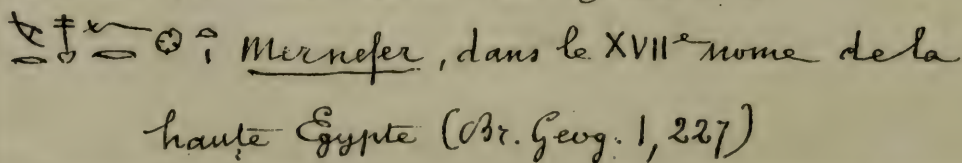 Mernefer, dans le XVIIe nome de la
haute Égypte (Br. Geog. 1, 227)